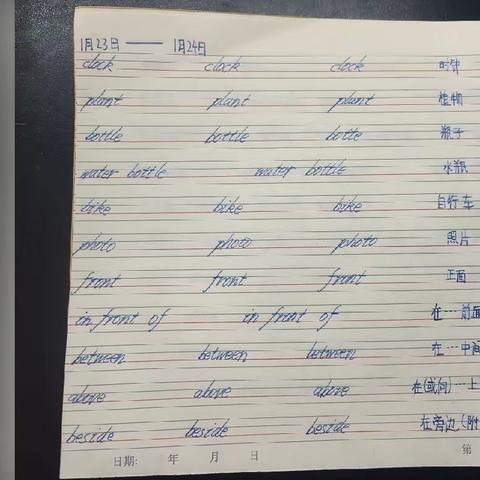 1月23日 —— 1月24日
clock clock clock 时钟
plant plant plant 植物
bottle bottle botte 瓶子
water bottle water bottle 水瓶
bike bike bike 自行车
photo photo photo 照片
front front front 正面
in front of in front of 在…前面
between between between 在…中间
above above above 在(或向)…上
beside beside beside 在旁边(附
日期: 年 月 日 第